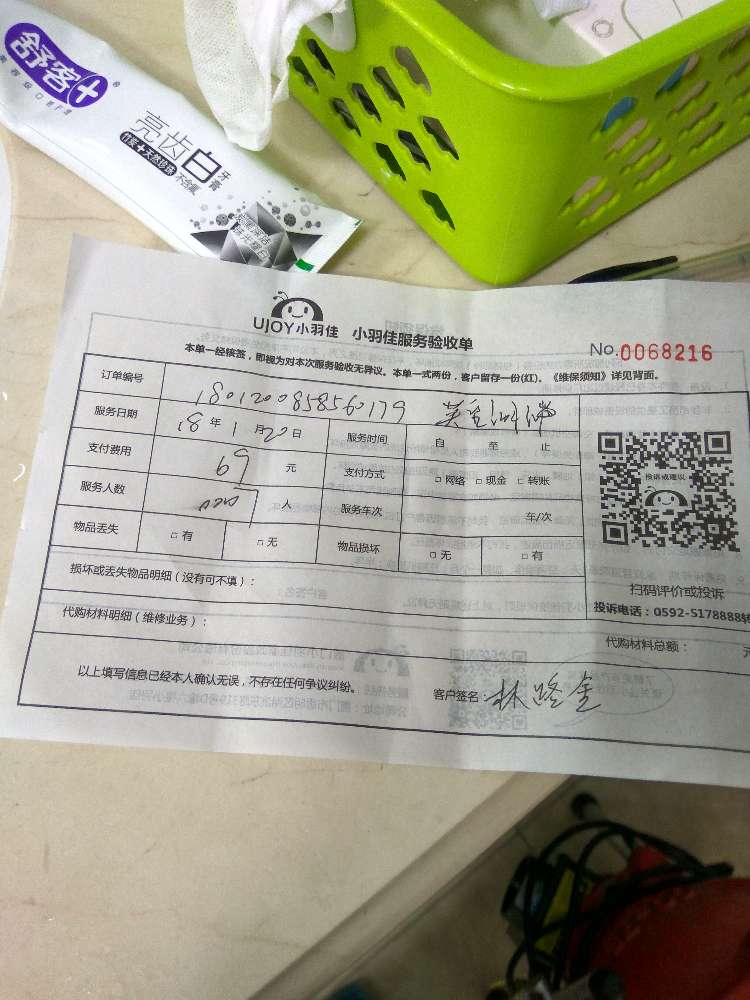 舒客+
亮齿白牙膏
竹炭+天然珍珠 不含氟
UJOY小羽佳 小羽佳服务验收单
No.0068216
本单一经核签，即视为对本次服务验收无异议。本单一式两份，客户留存一份(红)。《维保须知》详见背面。
订单编号 1801200858560179
服务日期 18年1月20日 服务时间 自 至 止
支付费用 69元 支付方式 □网络 □现金 □转账
服务人数 人 服务车次 车/次
物品丢失 □有 □无 物品损坏 □无 □有
投诉或建议
扫码评价或投诉
投诉电话：0592-5178888转
损坏或丢失物品明细（没有可不填）：
代购材料明细（维修业务）：
代购材料总额： 元
以上填写信息已经本人确认无误，不存在任何争议纠纷。
客户签名：林路金